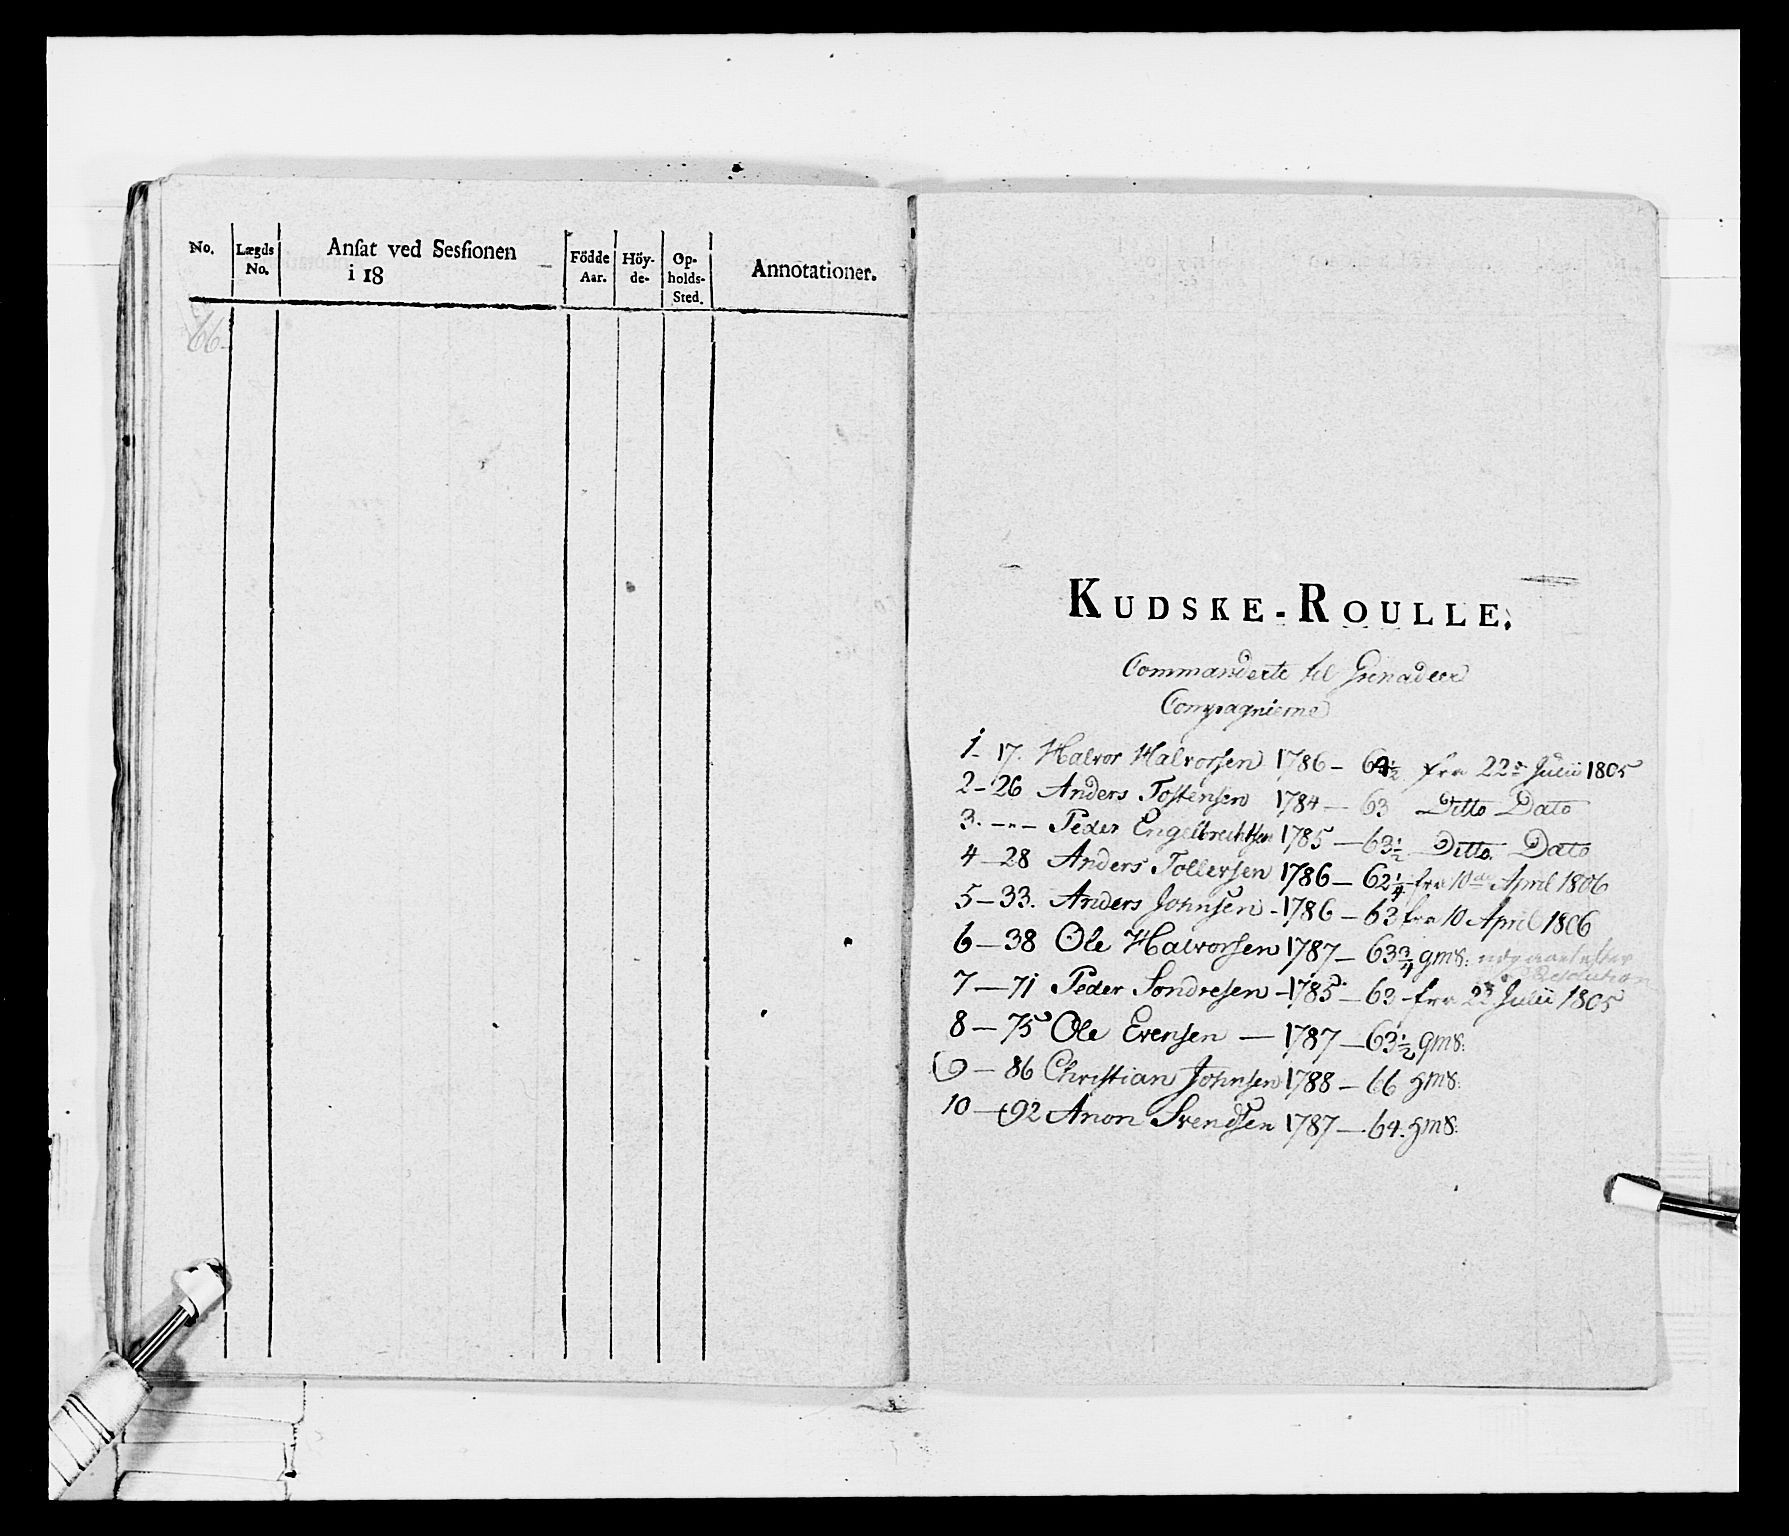 No.
Lægds No.
Ansat ved Sessionen i 18
Födde Aar.
Höy-de-
Op-holds-Sted.
Annotationer.
66
KUDSKE-ROULLE.
Commanderte til Grenadeer
Compagnierne
1- 17. Halvor Halvorsen 1786 - 64½ fra 22de Julii 1805
2 - 26 Anders Tostensen 1784 - 63 Ditto Dato
3. - " - Peder Engelbrechtsen 1785 - 63½ Ditto. Dato
4 - 28 Anders Tollersen 1786 - 62¼ fra 10de April 1806
5 - 33. Anders Johnsen - 1786 - 63 fra 10 April 1806
6 - 38 Ole Halvorsen 1787 - 63¾ gms: efter
Resolution
7 - 71 Peder Sondresen - 1785 - 63 fra 22 Julii 1805
8 - 75 Ole Evensen - 1787 - 63½ gms:
9 - 86 Christian Johnsen 1788 - 66 gms:
10 - 92 Anon Svendsen 1787 - 64. gms: